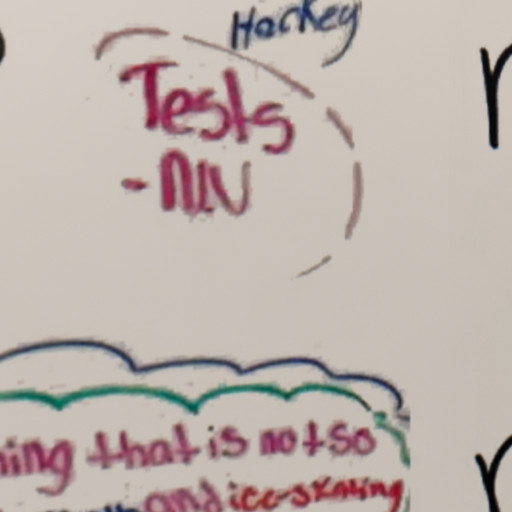 Hockey
Tests
-NIV
that is not so
and ice-skating